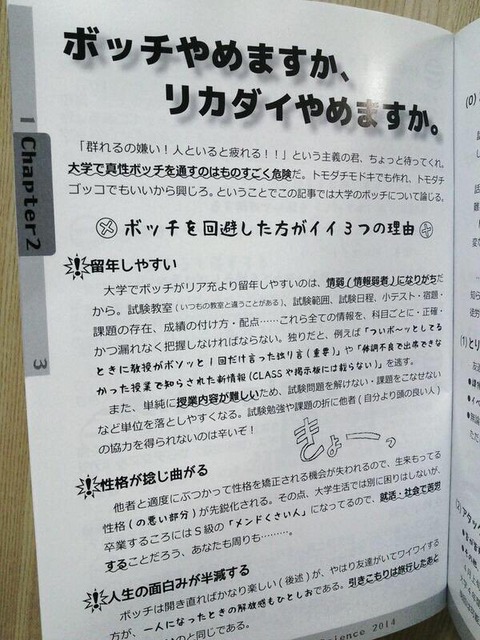 ボッチやめますか、
リカダイやめますか。
1 Chapter2
3
「群れるの嫌い！人といると疲れる！！」という主義の君、ちょっと待ってくれ。
大学で真性ボッチを通すのはものすごく危険だ。トモダチモドキでも作れ、トモダチ
ゴッコでもいいから興じろ。ということでこの記事では大学のボッチについて論じる。
ボッチを回避した方がイイ3つの理由
留年しやすい
大学でボッチがリア充より留年しやすいのは、情弱（情報弱者）になりがちだ
から。試験教室（いつもの教室と違うことがある）、試験範囲、試験日程、小テスト・宿題・
課題の存在、成績の付け方・配点……これら全ての情報を、科目ごとに・正確・
かつ漏れなく把握しなければならない。独りだと、例えば「ついボ〜ッとしてる
ときに教授がボソッと1回だけ言った独り言（重要）」や「体調不良で出席できな
かった授業で知らされた新情報（CLASSや掲示板には載らない）」を逃す。
また、単純に授業内容が難しいため、試験問題を解けない・課題をこなせない
など単位を落としやすくなる。試験勉強や課題の折に他者（自分より頭の良い人）
の協力を得られないのは辛いぞ！
きょーっ
性格が捻じ曲がる
他者と適度にぶつかって性格を矯正される機会が失われるので、生来もってる
性格（の悪い部分）が先鋭化される。その点、大学生活では別に困りはしないが、
卒業するころにはS級の「メンドくさい人」になってるので、就活・社会で苦労
することだろう、あなたも周りも……。
人生の面白みが半減する
ボッチは開き直ればかなり楽しい（後述）が、やはり友達がいてワイワイする
方が、一人になったときの解放感もひとしおである。引きこもりは旅行したあと
のと同じである。
Science 2014